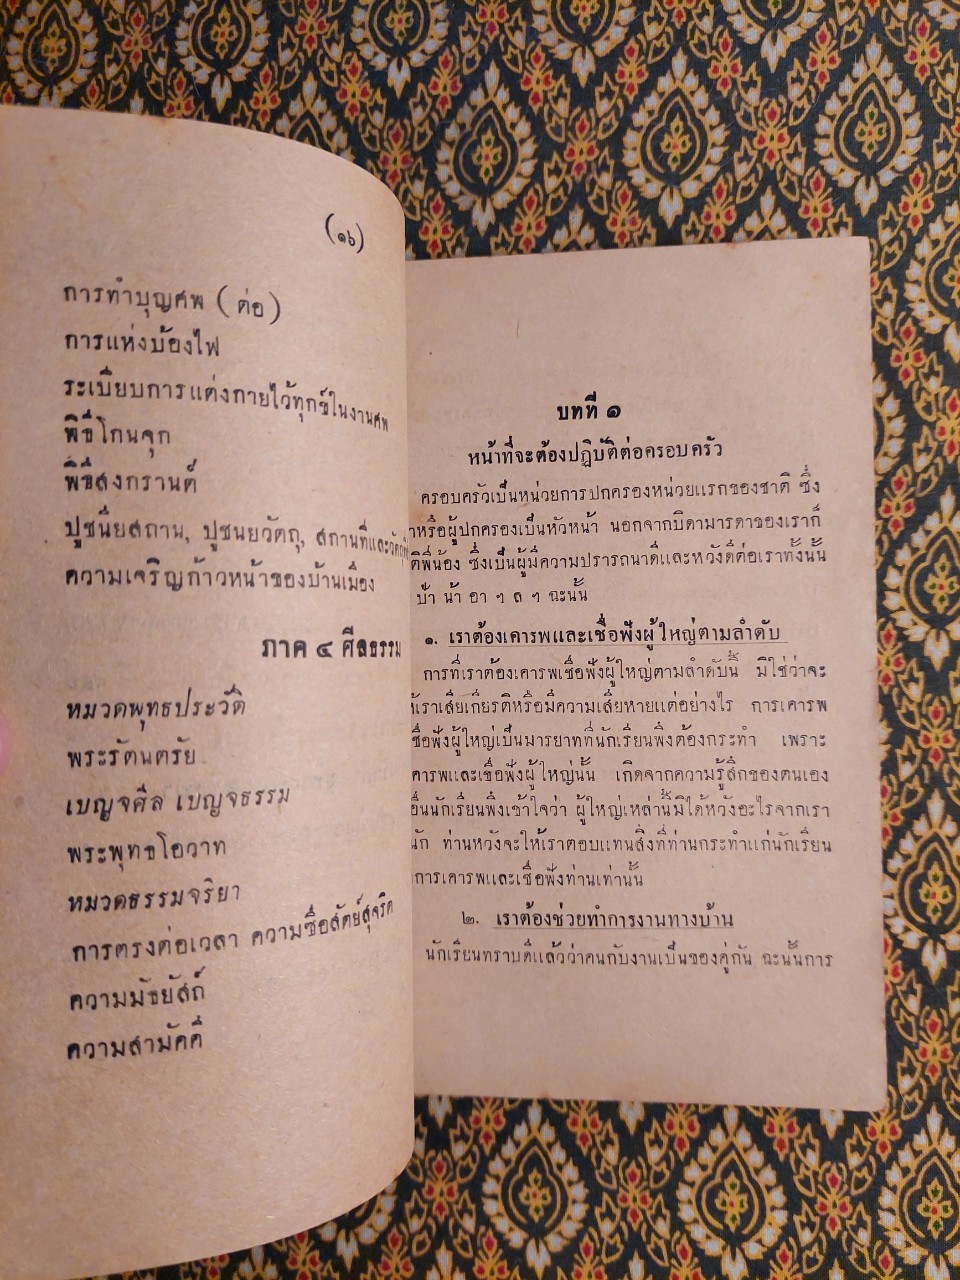 (๑๖)
การทำบุญศพ (ต่อ)
การแห่งบ้องไฟ
ระเบียบการแต่งกายไว้ทุกข์ในงานศพ
พิธีโกนจุก
พิธีสงกรานต์
ปูชนียสถาน, ปูชนยวัตถุ, สถานที่และวัตถุที่
ความเจริญก้าวหน้าของบ้านเมือง
ภาค ๔ ศีลธรรม
หมวดพุทธประวัติ
พระรัตนตรัย
เบญจศีล เบญจธรรม
พระพุทธโอวาท
หมวดธรรมจริยา
การตรงต่อเวลา ความซื่อสัตย์สุจริต
ความมัธยัสถ์
ความสามัคคี
บทที่ ๑
หน้าที่จะต้องปฏิบัติต่อครอบครัว
ครอบครัวเป็นหน่วยการปกครองหน่วยแรกของชาติ ซึ่ง
าหรือผู้ปกครองเป็นหัวหน้า นอกจากบิดามารดาของเราก็
ติพี่น้อง ซึ่งเป็นผู้มีความปรารถนาดีและหวังดีต่อเราทั้งนั้น
ป้า น้า อา ๆ ล ๆ ฉะนั้น
๑. เราต้องเคารพและเชื่อฟังผู้ใหญ่ตามลำดับ
การที่เราต้องเคารพเชื่อฟังผู้ใหญ่ตามลำดับนี้ มิใช่ว่าจะ
ห้เราเสียเกียรติหรือมีความเสียหายแต่อย่างไร การเคารพ
ชื่อฟังผู้ใหญ่เป็นมารยาทที่นักเรียนพึงต้องกระทำ เพราะ
คารพและเชื่อฟังผู้ใหญ่นั้น เกิดจากความรู้สึกของตนเอง
อื่นนักเรียนพึงเข้าใจว่า ผู้ใหญ่เหล่านี้มิได้หวังอะไรจากเรา
นัก ท่านหวังจะให้เราตอบแทนสิ่งที่ท่านกระทำแก่นักเรียน
การเคารพและเชื่อฟังท่านเท่านั้น
๒. เราต้องช่วยทำการงานทางบ้าน
นักเรียนทราบดีแล้วว่าคนกับงานเป็นของคู่กัน ฉะนั้นการ